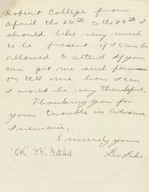 Robert College from
april the 24th to the 29th I
should like very much
to be present if I can be
allowed to attend If you
can get me such permission
or tell me how I can
I would be very thankful,
Thanking you for
your trouble in advance
I remain,
Sincerely yours
"OK"